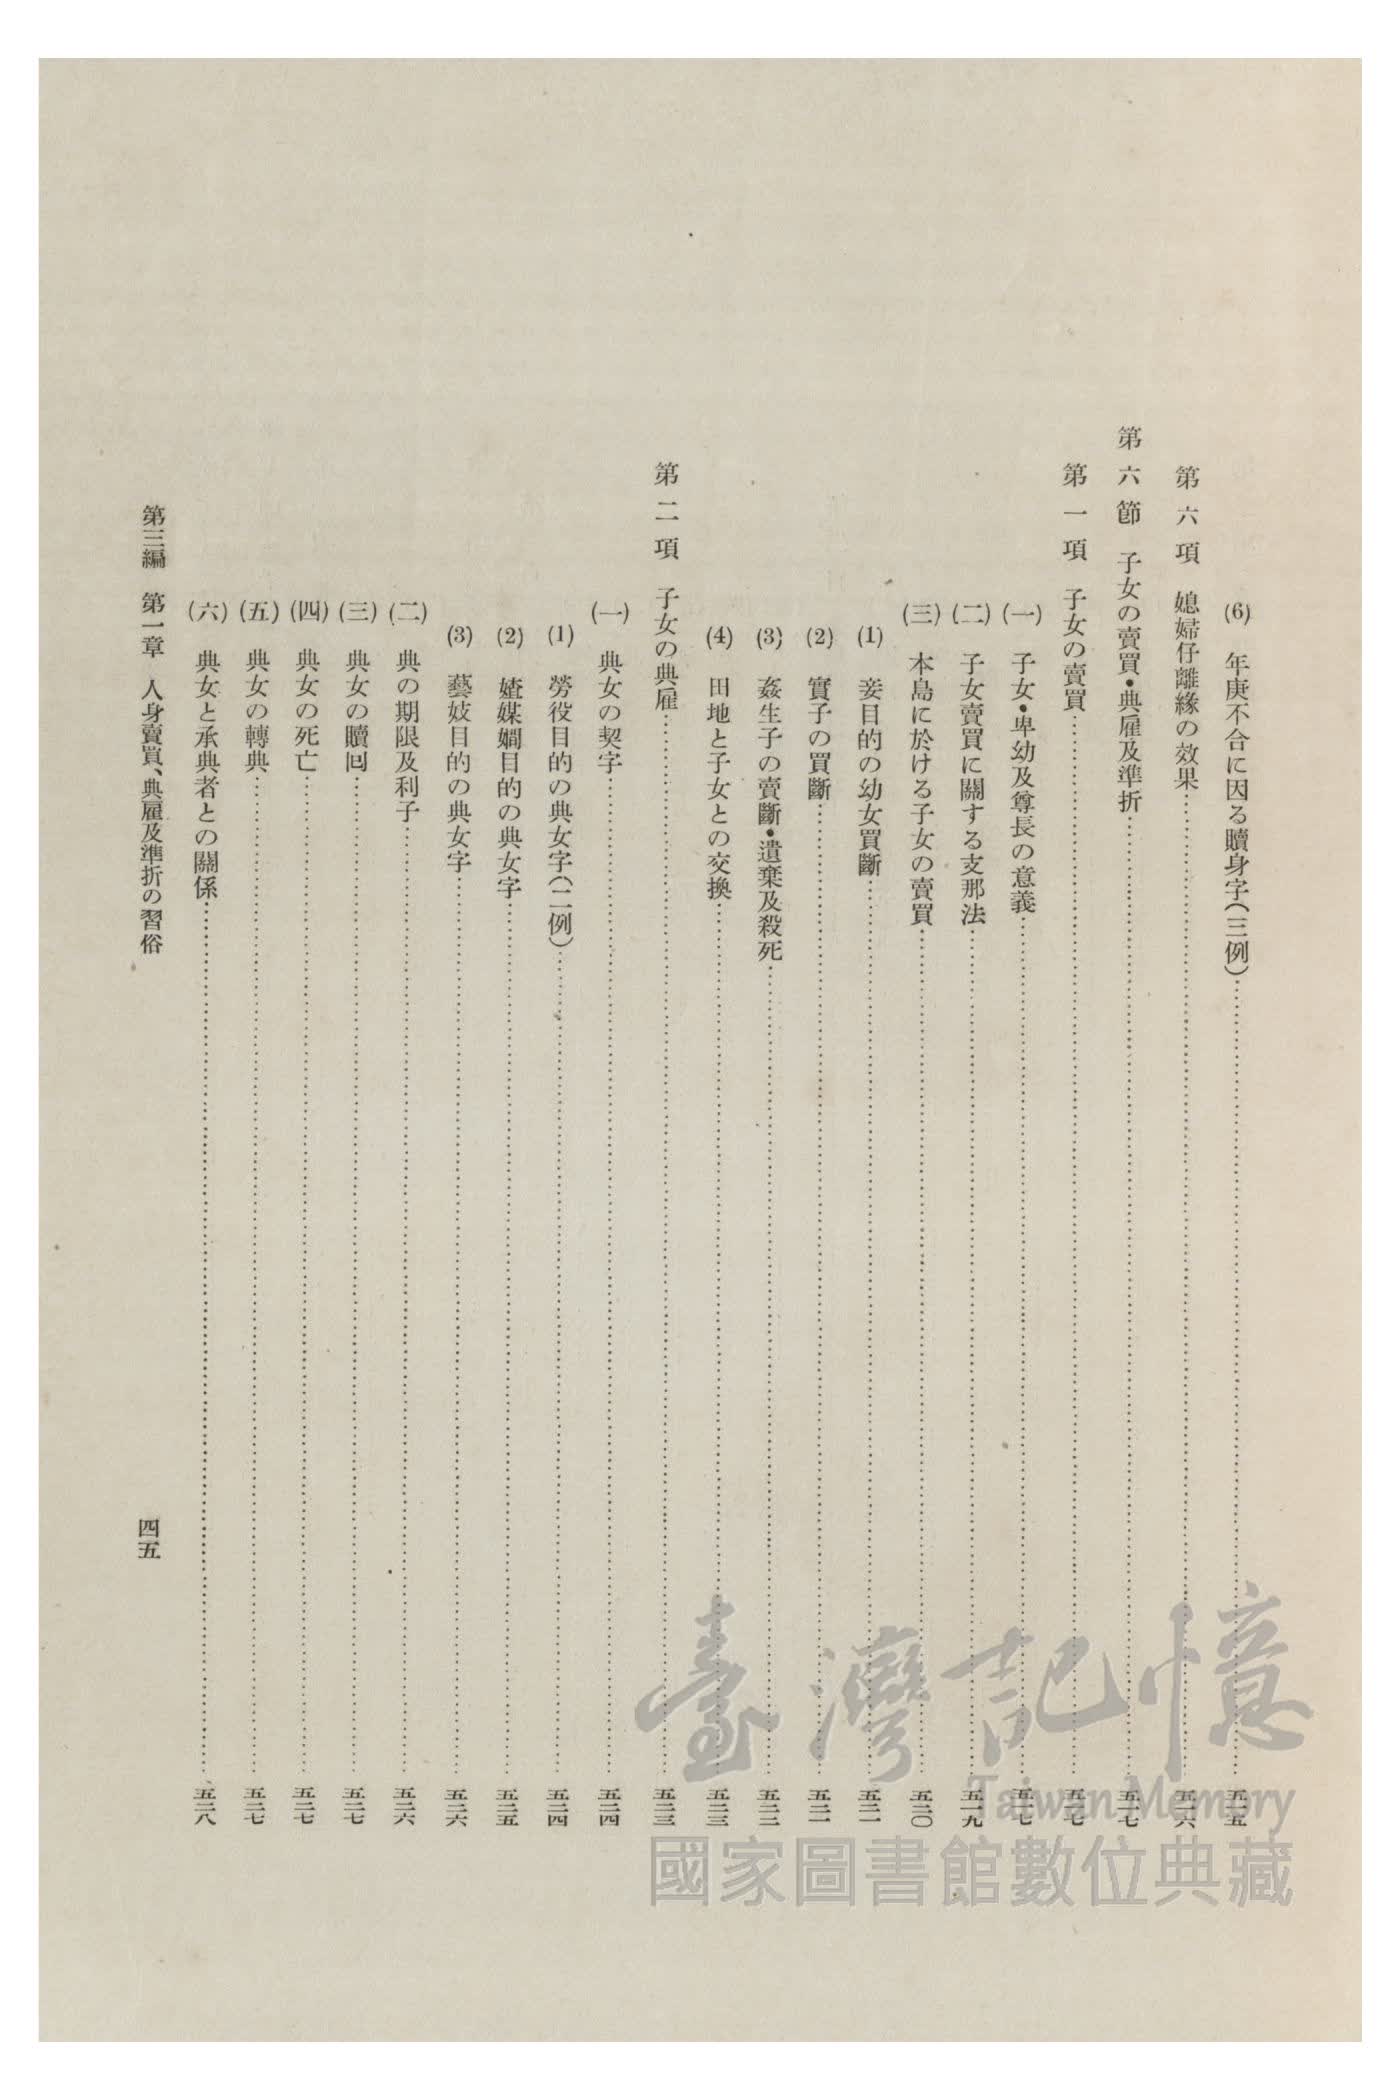 (6) 年庚不合に因る贖身字(三例)……五一五
第六項 媳婦仔離緣の效果……五一六
第六節 子女の賣買・典雇及準折……五一七
第一項 子女の賣買……五一七
(一) 子女・卑幼及尊長の意義……五一七
(二) 子女賣買に關する支那法……五一九
(三) 本島に於ける子女の賣買……五二〇
(1) 妾目的の幼女買斷……五二一
(2) 實子の買斷……五二一
(3) 姦生子の賣斷・遺棄及殺死……五二二
(4) 田地と子女との交換……五二三
第二項 子女の典雇……五二三
(一) 典女の契字……五二四
(1) 勞役目的の典女字(二例)……五二四
(2) 𡞰媒嫺目的の典女字……五二五
(3) 藝妓目的の典女字……五二六
(二) 典の期限及利子……五二六
(三) 典女の贖回……五二七
(四) 典女の死亡……五二七
(五) 典女の轉典……五二七
(六) 典女と承典者との關係……五二八
第三編 第一章 人身賣買、典雇及準折の習俗
四五
臺灣記憶
Taiwan Memory
國家圖書館數位典藏